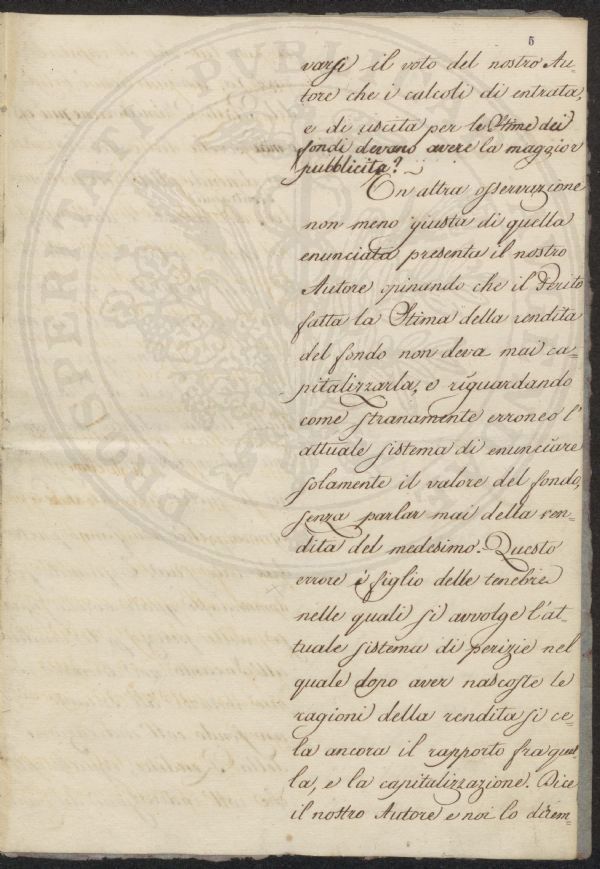 5
varsi il voto del nostro Au-
tore che i calcoli di entrata,
e di uscita per le Stime dei
fondi devano avere la maggior
pubblicita?
Un altra osservazione
non meno giusta di quella
enunciata presenta il nostro
Autore opinando che il Perito
fatta la Stima della rendita
del fondo non deva mai ca-
pitalizzarla, e riguardando
come stranamente erroneo l'
attuale sistema di enunciare
solamente il valore del fondo,
senza parlar mai della ren-
dita del medesimo. Questo
errore è figlio delle tenebre
nelle quali si avvolge l'at-
tuale sistema di perizie nel
quale dopo aver nascoste le
ragioni della rendita si ce-
la ancora il rapporto fra quel-
la, e la capitalizzazione. Dice
il nostro Autore e noi lo diciem-
PROSPERITATI PUBLIC